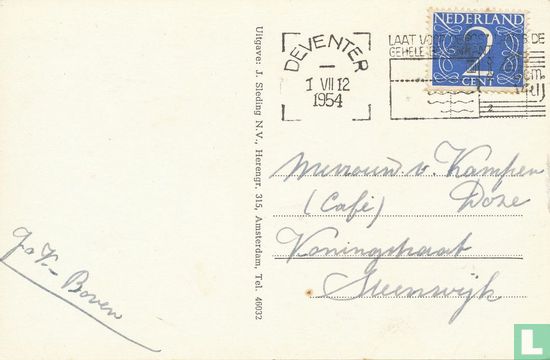 DEVENTER
1 VII 12
1954
LAAT DE
GEHELE
NEDERLAND
2
CENT
Uitgave: J. Sleding N.V., Herengr. 315, Amsterdam, Tel. 46032
Mevrouw v. Kampen
(Café) Doze
Koningstraat
Steenwijk
Boven